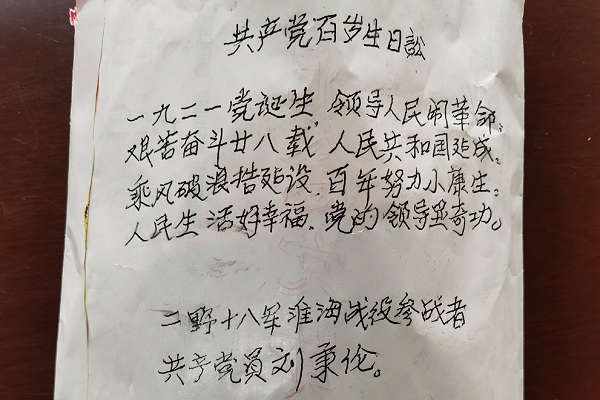 共产党百岁生日訟
一九二一党诞生,领导人民闹革命,
艰苦奋斗廿八载,人民共和国延成。
乘风破浪搞延设,百年努力小康生。
人民生活好幸福,党的领导显奇功。
二野十八军淮海战役参战者
共产党员刘秉伦。